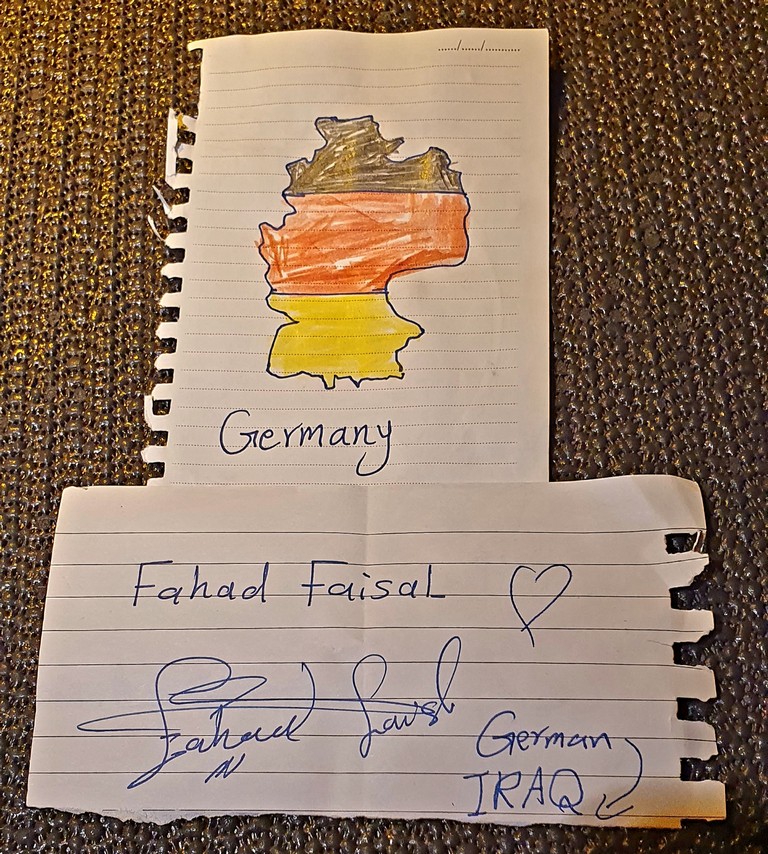 ....../....../..........
Germany
Fahad Faisal
Fahad Faisal
German
IRAQ